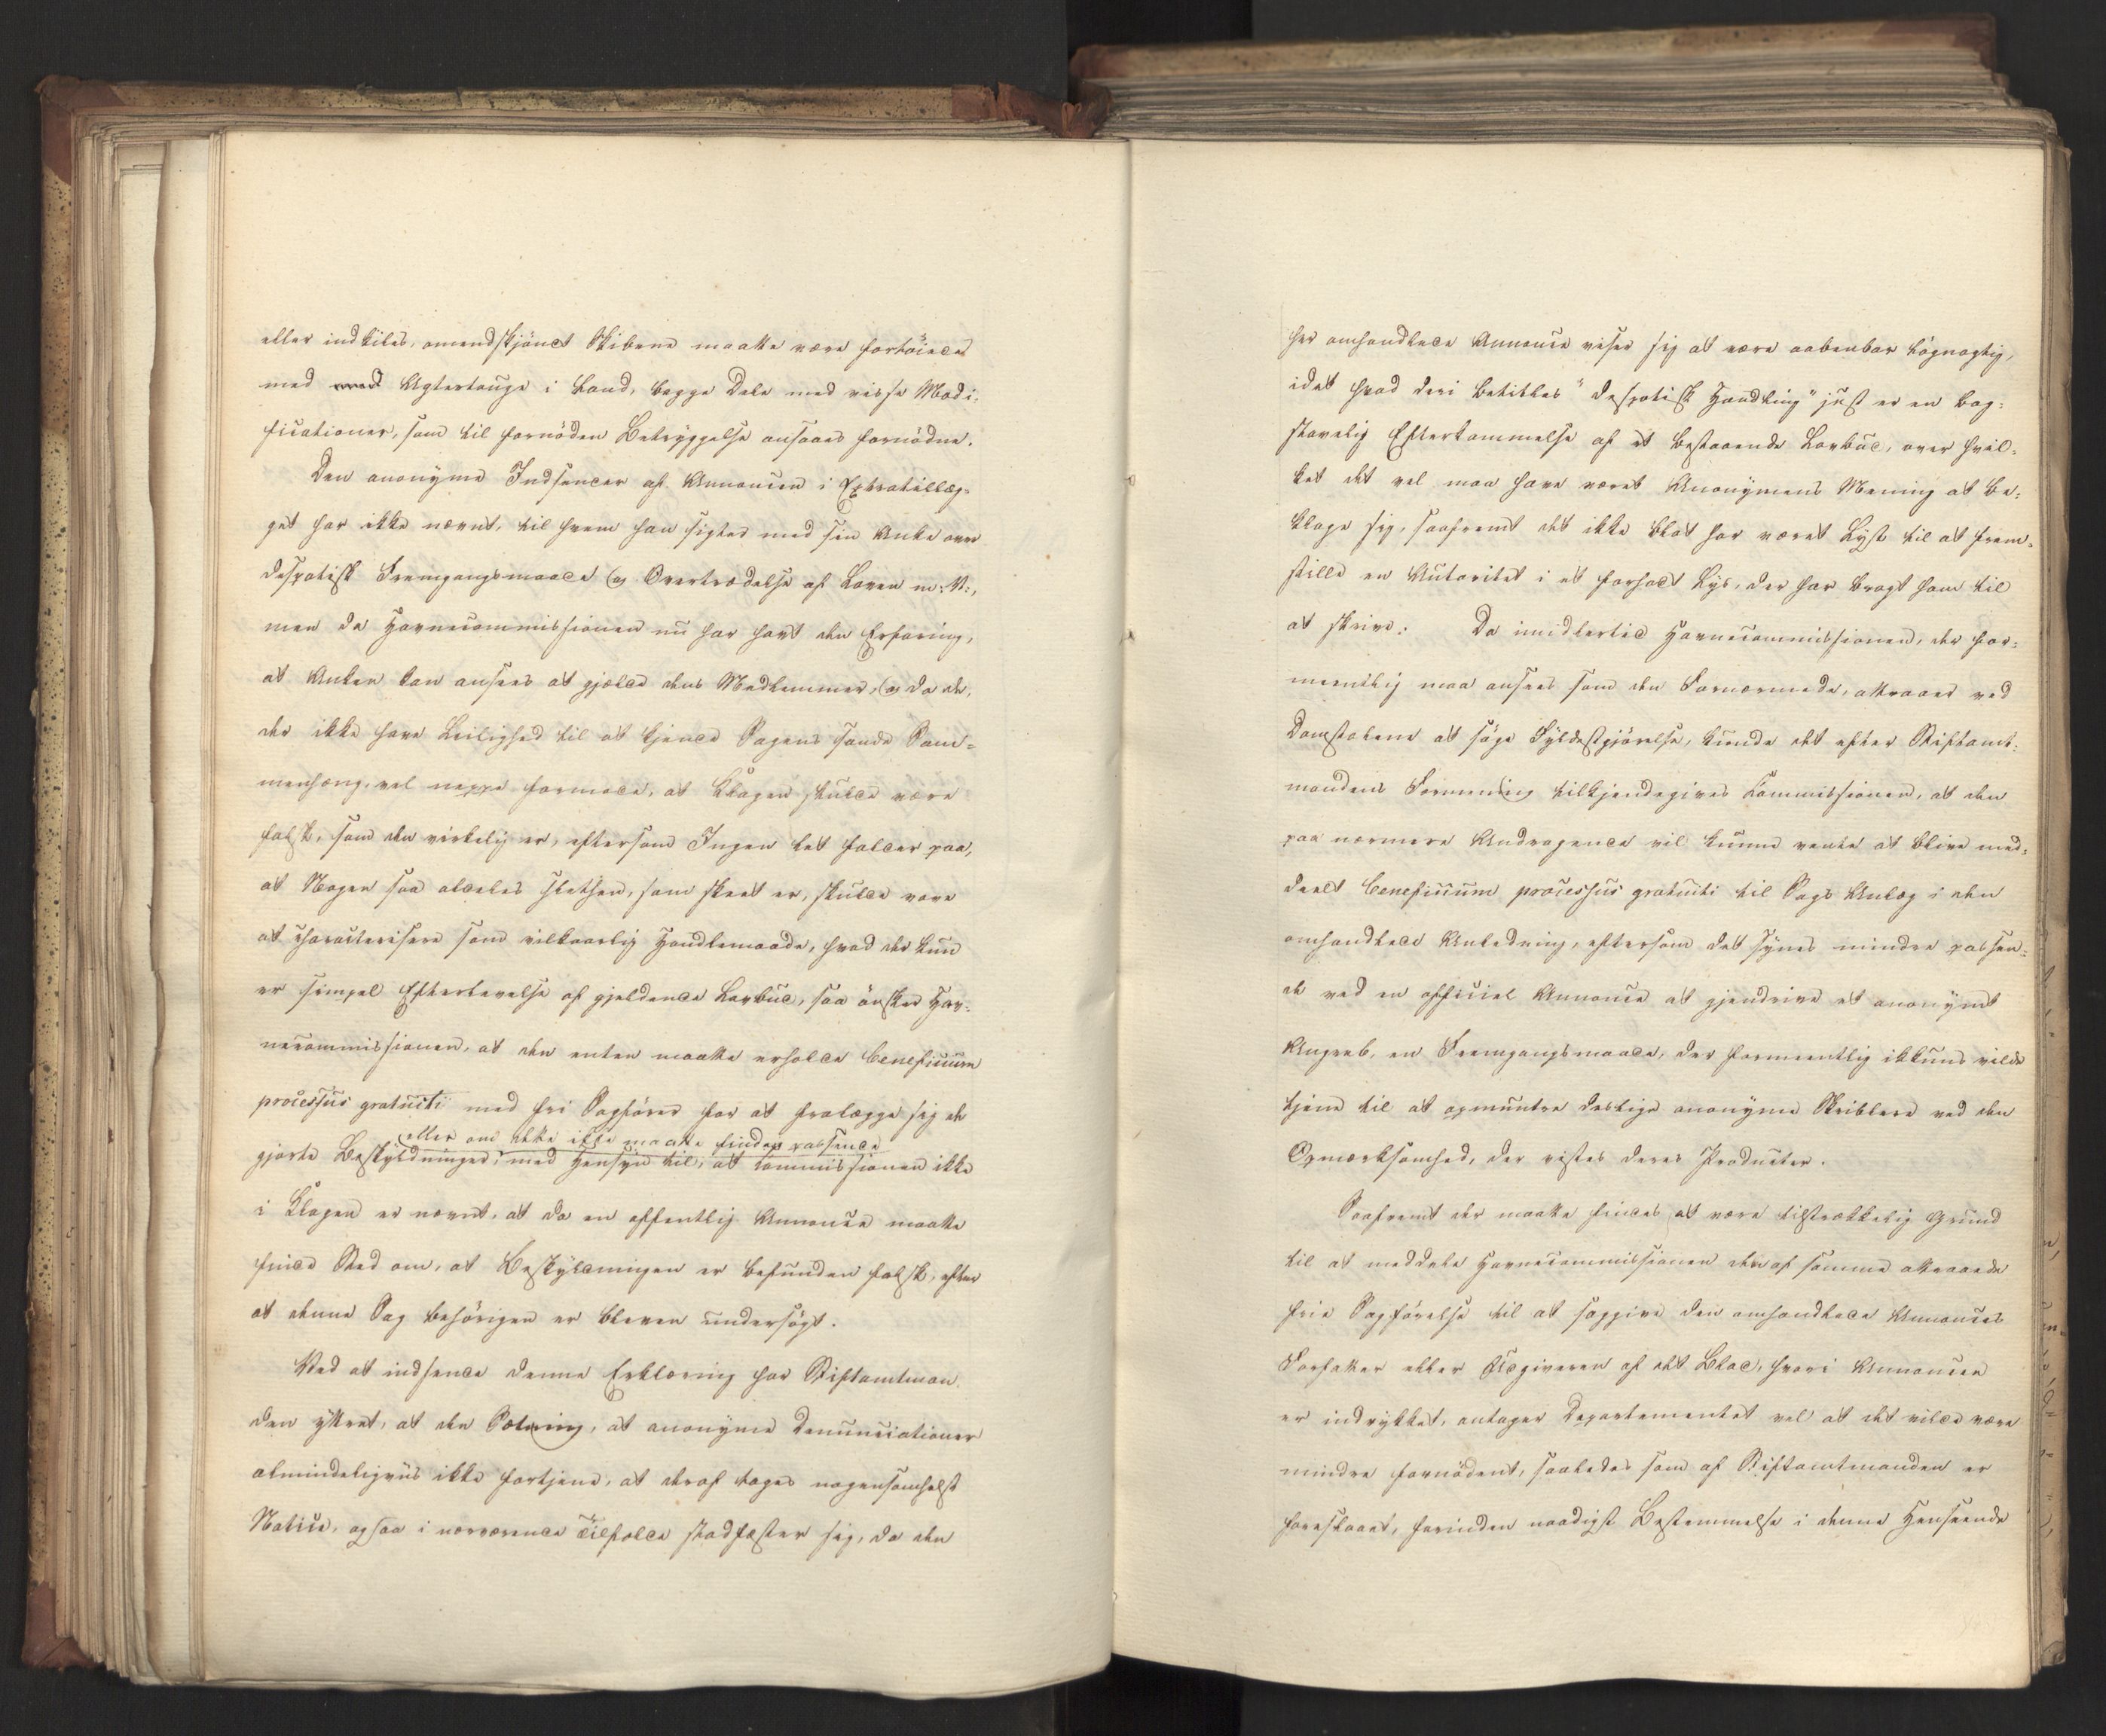 eller indkiles, omendskjöndt Skibene maatte være fortöiede
med med Agtertouge i Land, begge Dele med visse Modi-
ficationer, som til fornöden Betryggelse ansaaes fornödne.
Den anonyme Indsender af Annoncen i Extratillæg-
get har ikke nævnt, til hvem han sigter med sin Anke over
despotisk Fremgangsmaade og Overtrædelse af Loven m: V:,
men da Havnecommissionen nu har havt den Erfaring,
at Anken kan ansees at gjælde dens Medlemmer, og da de,
der ikke have Leilighed til at kjende Sagens sande Sam-
menhæng, vel neppe formode, at Klagen skulde være
falsk, som den virkelig er, eftersom Ingen let falder paa,
at Nogen saa aldeles slethen, som skeet er, skulde vove
at characterisere som vilkaarlig Handlemaade, hvad der kun
er simpel Efterlevelse af gjeldende Lovbud, saa önsker Hav-
necommissionen, at den enten maatte erholde beneficium
processus gratuiti med fri Sagförer for at fralægge sig de
eller om dette ikke maatte findes passende
gjorte Beskyldninger, med Hensyn til, at Commissionen ikke
i Klagen er nævnt, at da en offentlig Annonce maatte
finde Sted om, at Beskyldningen er befunden falsk, efter
at denne Sag behörigen er bleven undersögt.
Ved at indsende denne Erklæring har Stiftamtman-
den yttret, at den Sætning, at anonyme Denunciationer
almindeligviis ikke fortjene, at deraf tages nogensomhelst
Notice, ogsaa i nærværende Tilfælde stadfæster sig, da den
her omhandlede Annonce viser sig at være aabenbar lögnagtig,
idet hvad deri betitles "despotisk Handling" just er en bog-
stavelig Efterkommelse af et bestaaende Lovbud, over hvil-
ket det vel maa have været Anonymens Mening at be-
klage sig, saafremt det ikke blot har været Lyst til at frem-
stille en Autoritet i et forhadt Lys, der har bragt ham til
at skrive. Da imidlertid Havnecommissionen, der for-
meentlig maa ansees som den Fornærmede, attraaer ved
Domstolene at söge Fyldestgjörelse, kunde det efter Stiftamt-
mandens Formening tilkjendegives Commissionen, at den
paa nærmere Andragende vil kunne vente at blive med-
deelt beneficium processus gratuiti til Sags Anlæg i den
omhandlede Anledning, eftersom det synes mindre passen-
de ved en officiel Annonce at gjendrive et anonymt
Angreb, en Fremgangsmaade, der formeentlig ikkuns vilde
tjene til at opmuntre deslige anonyme Skriblere ved den
Opmærksomhed, der vistes deres Producter.
Saafremt der maatte findes at være tilstrækkelig Grund
til at meddele Havnecommissionen den af samme attraaede
frie Sagförelse til at sagsöge den omhandlede Annonces
Forfatter eller Udgiveren af det Blad, hvori Annoncen
er indrykket, antager Departementet vel at det vilde være
mindre fornödent, saaledes som af Stiftamtmanden er
foreslaaet, forinden naadigst Bestemmelse i denne Henseende